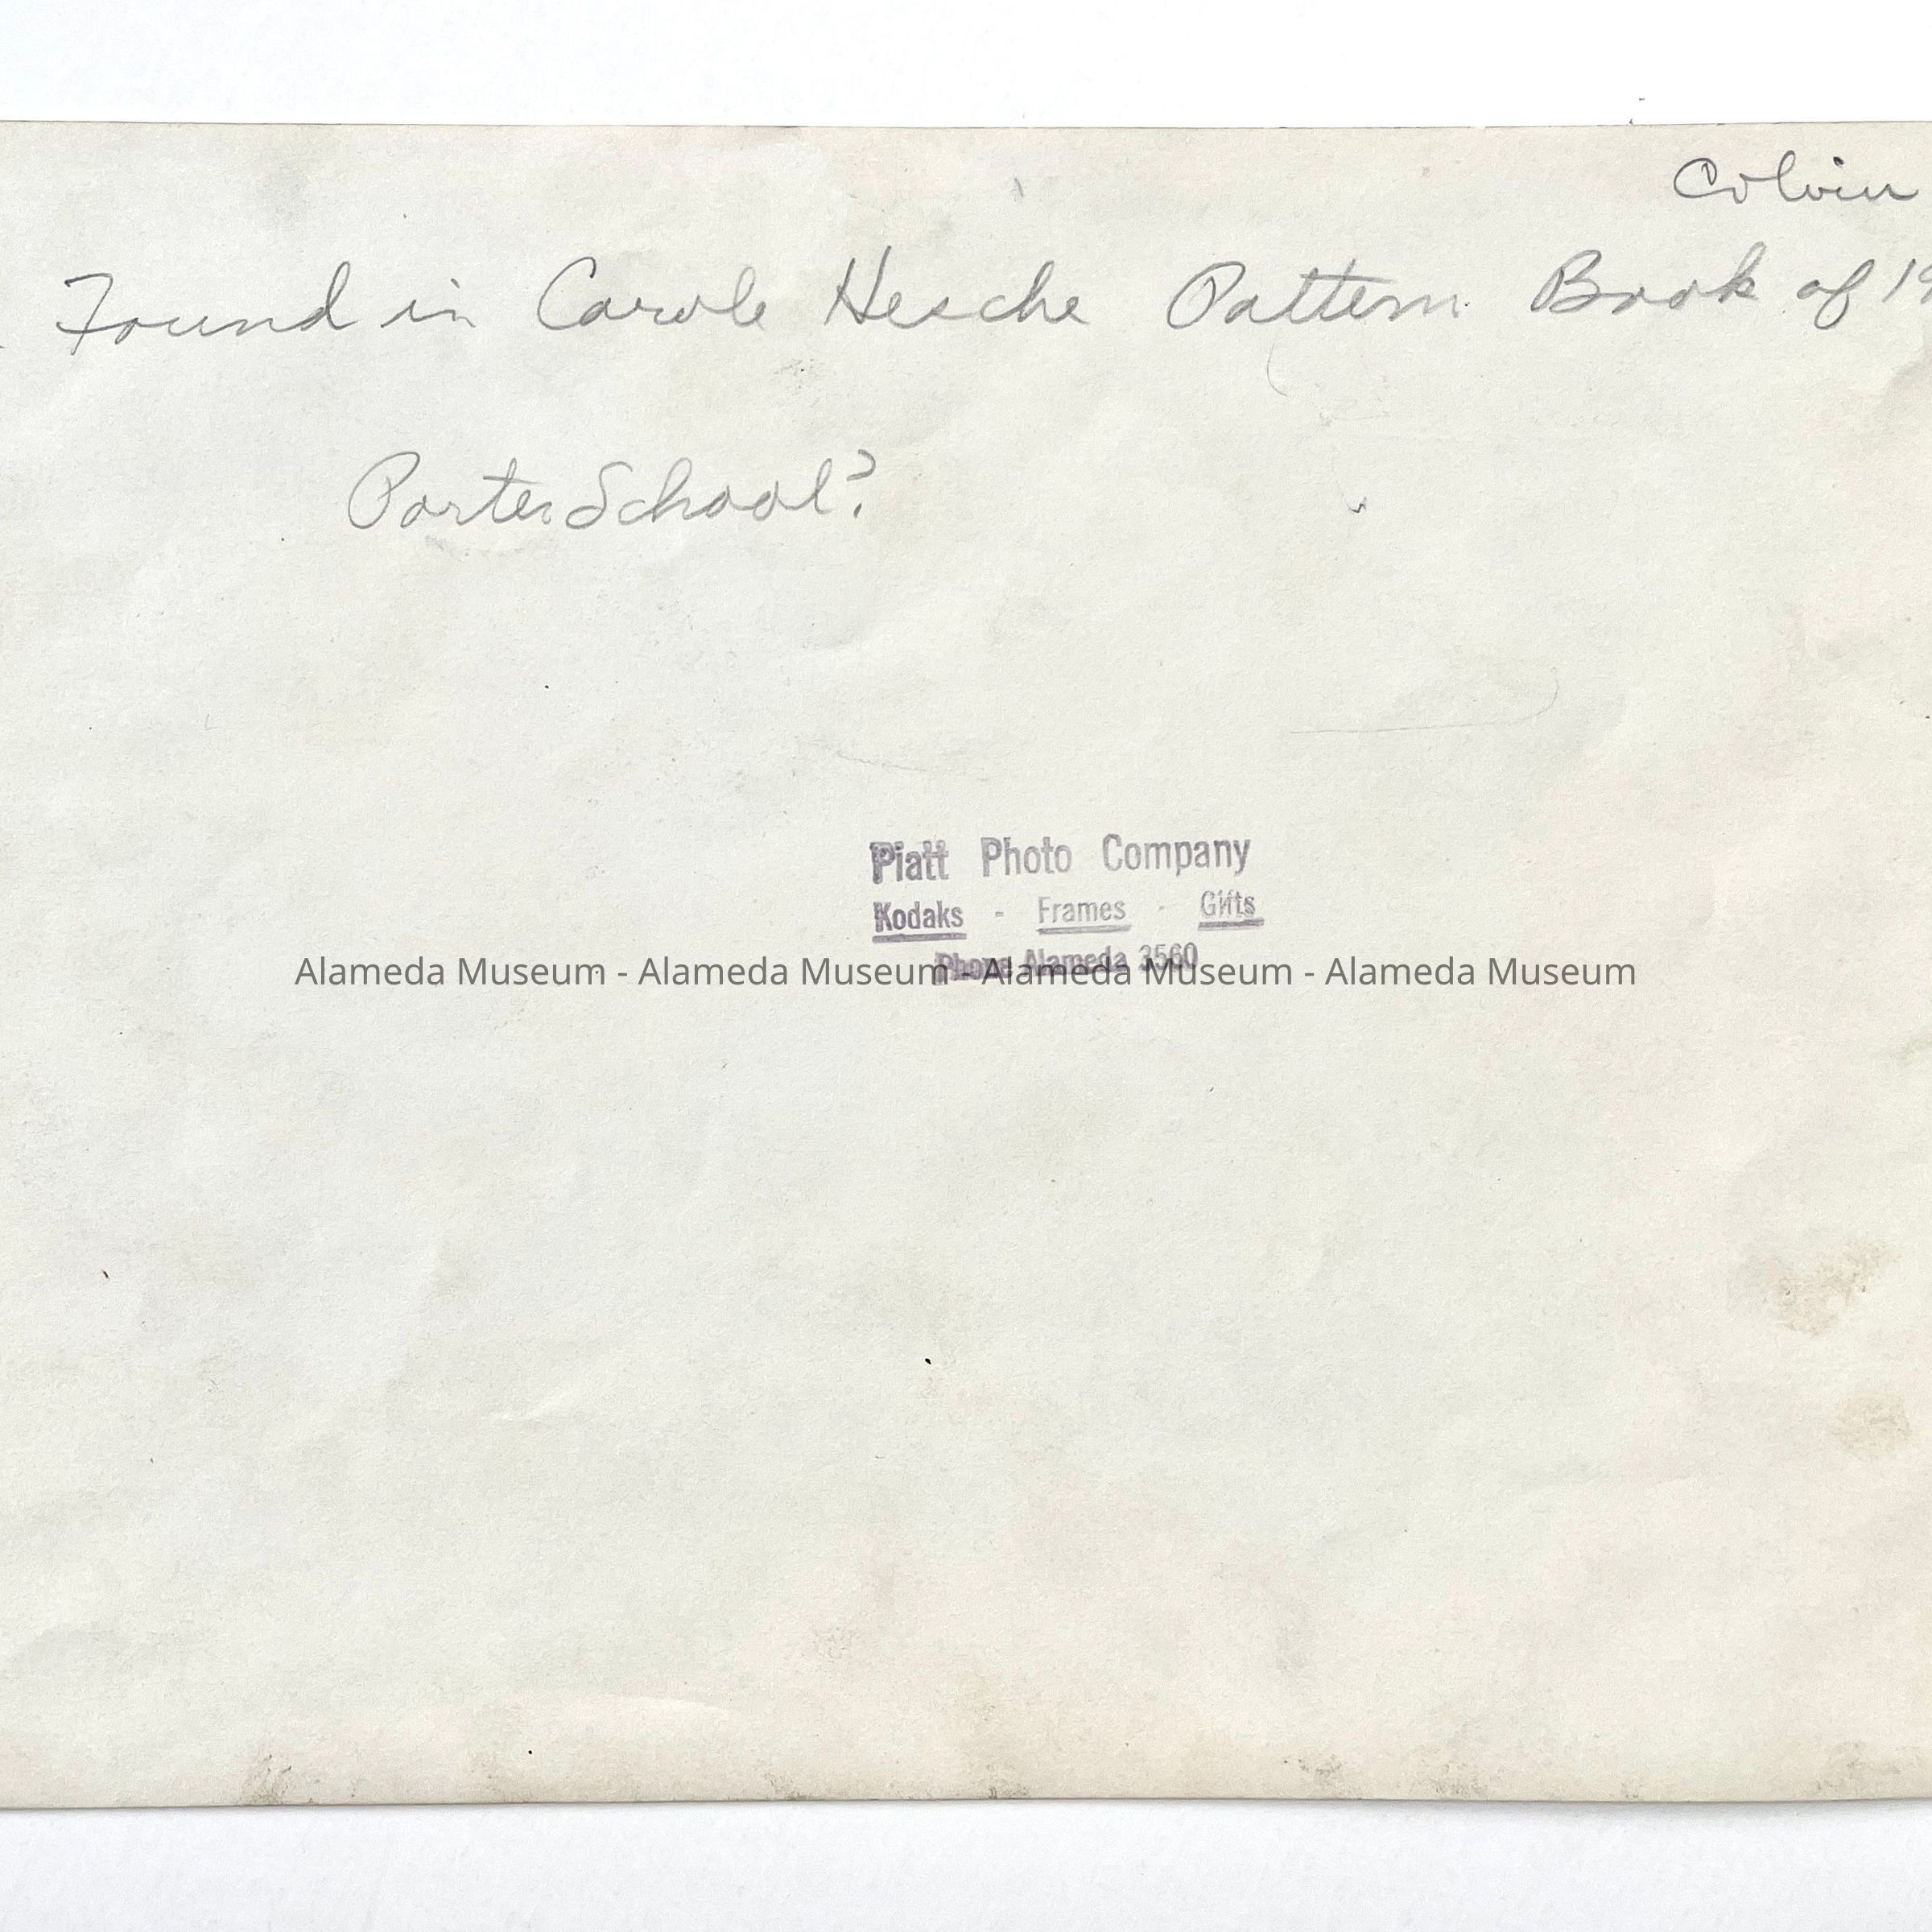 Colvin
Found in Carole Hesche Pattern Book of 19
Porter School?
Piatt Photo Company
Kodaks - Frames - Gifts
Phone Alameda 3560
Alameda Museum - Alameda Museum - Alameda Museum - Alameda Museum